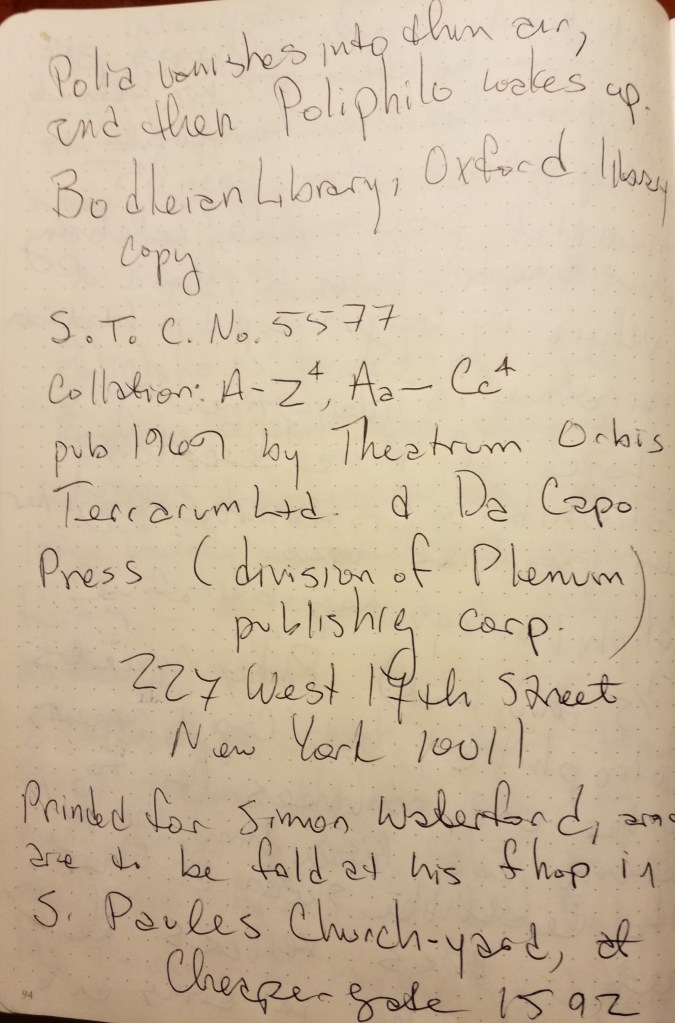 Polia vanishes into thin air,
and then Poliphilo wakes up.
Bodleian Library, Oxford library
copy
S.T.C. No. 5577
Collation: A-Z⁴, Aa-Cc⁴
pub 1969 by Theatrum Orbis
Terrarum Ltd. & Da Capo
Press (division of Plenum
publishing corp.)
227 West 17th Street
New York 10011
Printed for Simon Waterford, and
are to be fold at his fhop in
S. Paules Church-yard, at
Cheape-gate 1592
94